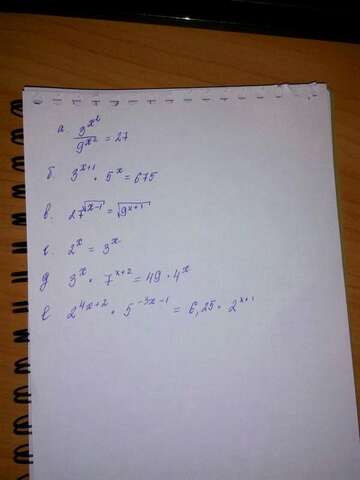 а. 3^x² / 9^x² = 27
б. 3^x+1 · 5^x = 675
в. 27^√x-1 = √9^x+1
г. 2^x = 3^x
д 3^x · 7^x+2 = 49 · 4^x
е 2^4x+2 · 5^-3x-1 = 6,25 · 2^x+1